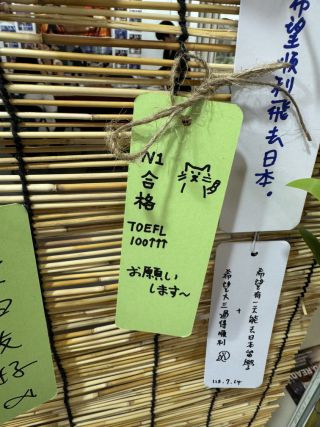 N1
合格
TOEFL
100↑↑↑
お願い
します~
希望順利飛去日本。
希望有一天能去日本留學
+
希望大三過得順利
112.7.14
友
好